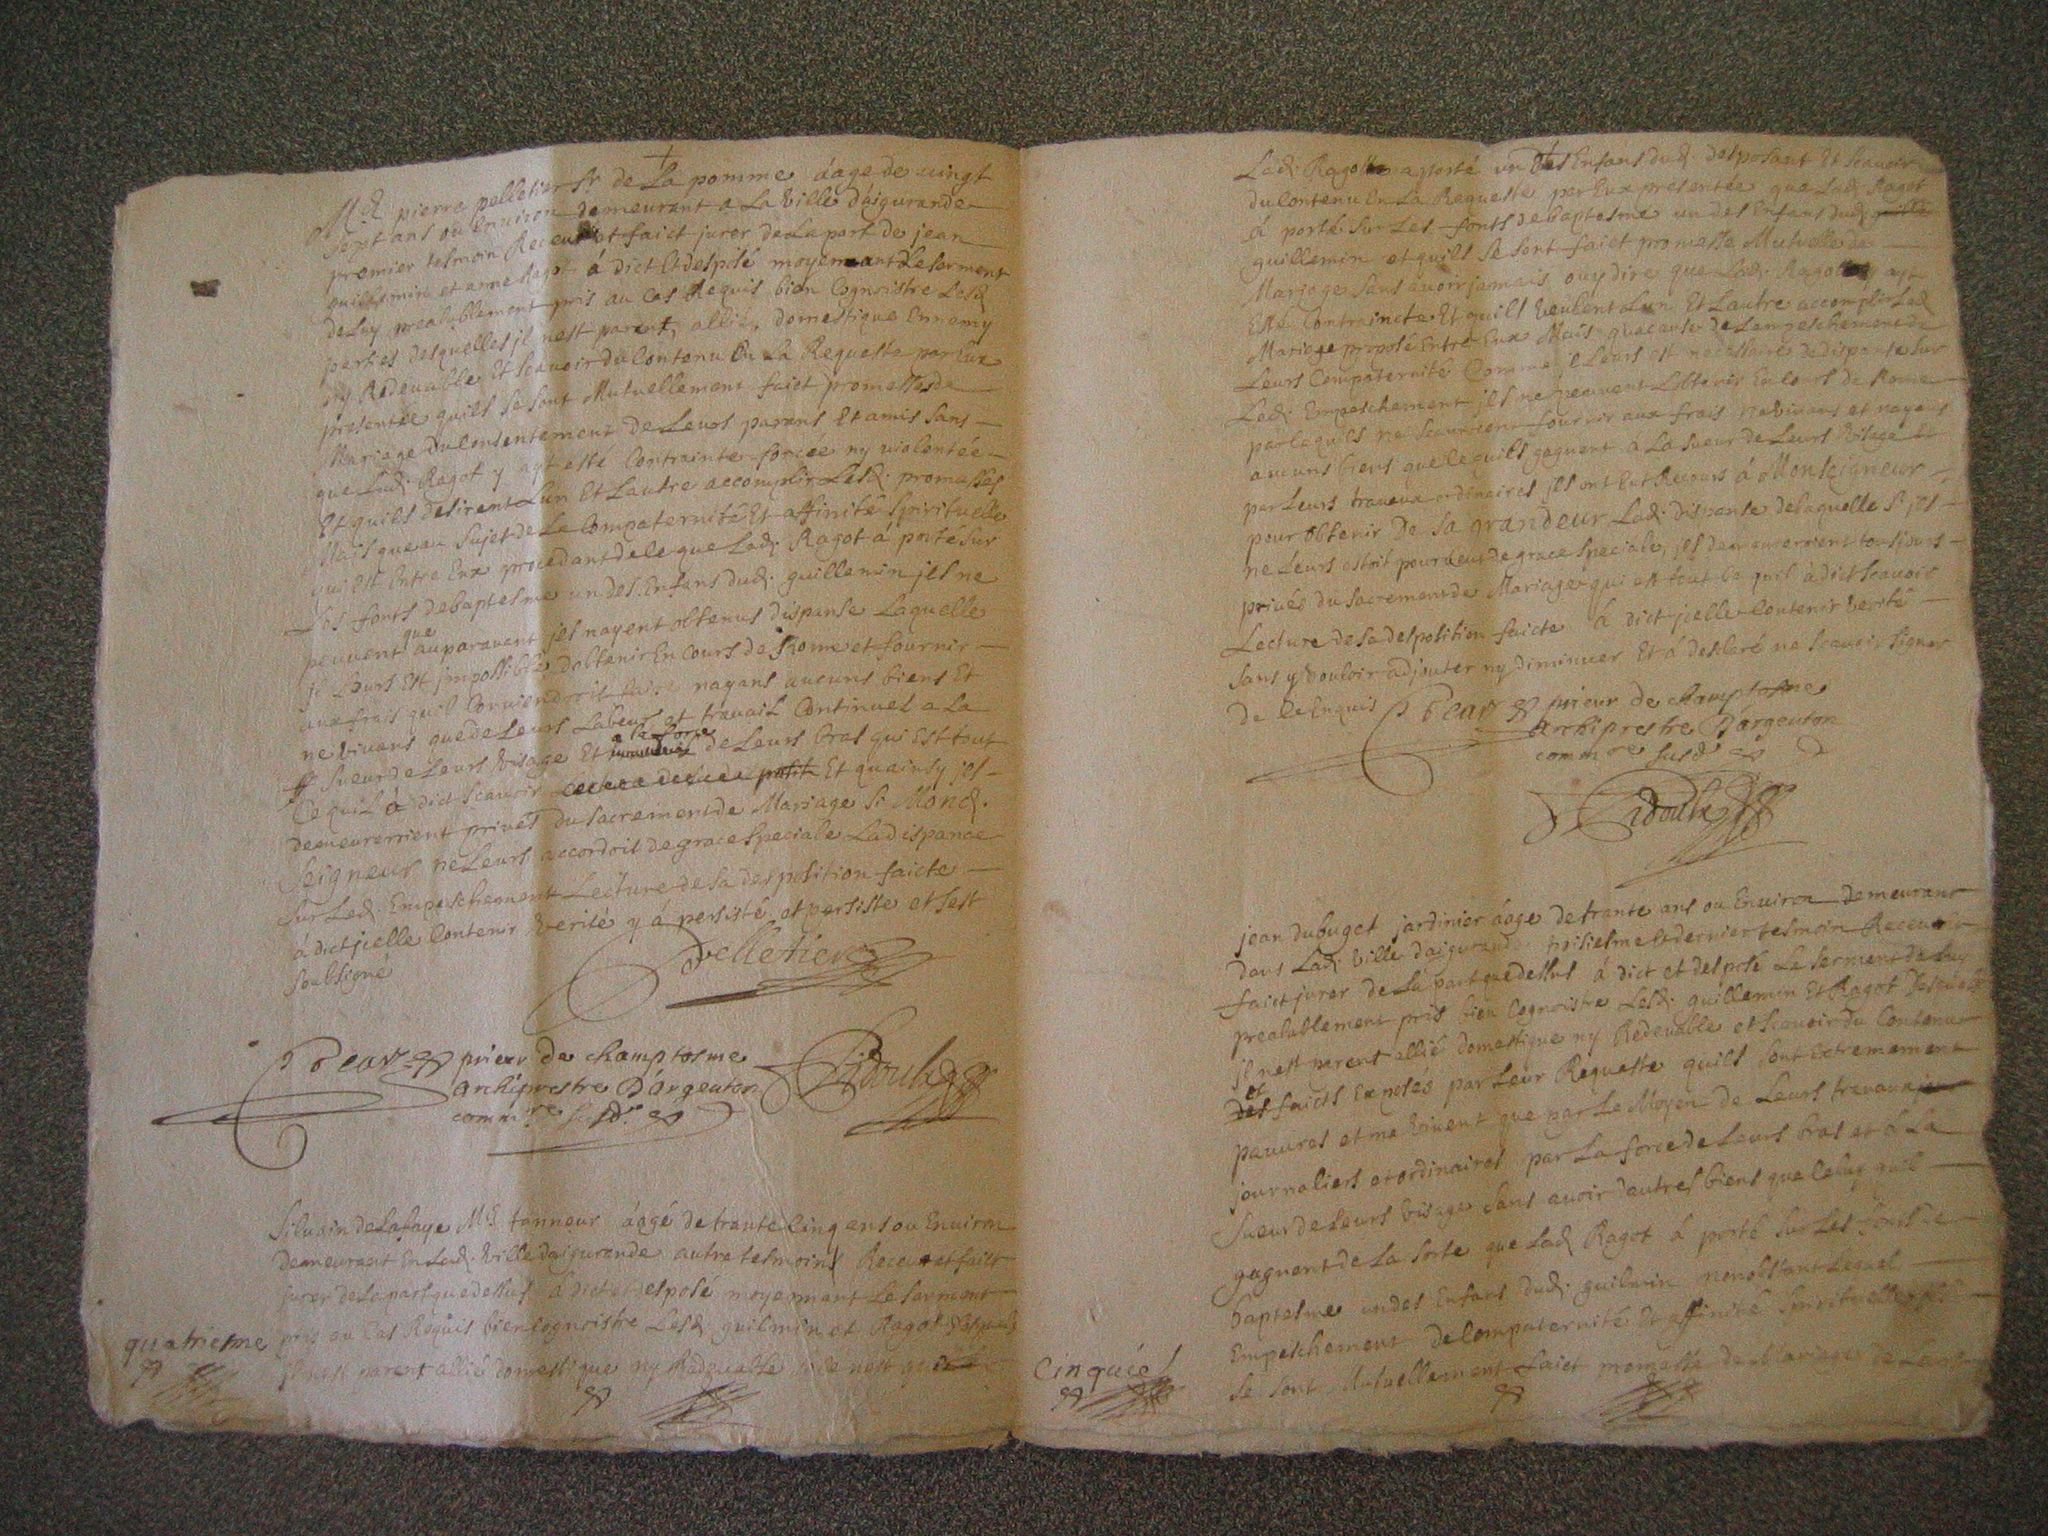 Mre pierre pelletier sr de La pomme áage de vingt
sept ans ou Environ demeurant a La Ville d'aigurande
premier tesmoin Receu et faict jurer de La part de jean
guillemin et anne Ragot á dict Et desposé moyennant Le serment
de Luy prealablement pris au Cas Requis bien Cognoistre Lesd
parties desquelles jl nest parent, allié, domestique Ennemy
ny Redevable Et Scavoir du Contenu En La Requeste par Eux
presentée quils se sont Mutuellement faict promesses de
Mariage du Consentement de Leurs parens Et amis sans
que Lad. Ragot y ayt esté Contrainte forcée ny violentée
Et quils desirent Lun Et Lautre accomplir Lesd. promesses
Mais que au Sujet de La Compaternité Et affinité Spirituelle
qui est Entre Eux procedant de ce que Lad. Ragot á porté sur
Les fonts de baptesme un des Enfans dud. guillemin jls ne
peuvent que auparavant jls nayent obtenus dispanse Laquelle
jl Leurs Est jmpossible dobtenir En Cours de Rome et fournir
aux frais quil Conviendroit faire nayans aucuns biens Et
ne vivans que de Leurs Labeur et travail Continuel a La
Sueur de Leurs Visage Et a la force de Leurs bras qui Est tout
Ce quil á dict Scavoir Et quainsy jls
demeurerrient privés du Sacrement de Mariage Si Mond.
Seigneur ne Leurs accordoit de grace Speciale La dispance
Sur Led. Empeschement Lecture de sa desposition faicte
á dict jcelle Contenir Verité y á persisté et persiste et sest
Soubsigné
Pelletier
prieur de champtosme
Archiprestre D'argenton
commre susd.
Silvain de Lafaye Md tanneur áagé de trante Cinq ans ou Environ
demeurant En Lad. Ville daigurande autre tesmoins Receu et faict
jurer de La part que dessus á dict et desposé moyennant Le serment
pris au Cas Requis bien Cognoistre Lesd. guilmin et Ragot desquels
jl nest parent allié domestique ny Redevable
quatriesme
Lad. Ragot a porté un des Enfans dud. desposant Et Scavoir
du Contenu En La Requeste par Eux presentée que Lad. Ragot
á porté sur Les fonts de baptesme un des Enfans dud.
guillemin et quils se sont faict promesse Mutuelle de
Mariage sans avoir jamais ouy dire que Lad. Ragot y ayt
Esté Contraincte Et quils veulent Lun Et Lautre accomplir Led.
Mariage proposé Entre Eux Mais qua cause de Lempeschement de
Leurs Compaternité Comme jl Leurs est necessaire de dispanse sur
Led. Empeschement jls ne peuvent Lobtenir En Cours de Rome
parce quils ne Scauroient fournir aux frais ne vivans et nayans
aucuns biens que ce quils gagnent á La Sueur de Leurs Visage Et
par Leurs travaux ordinaires jls ont Eut Recours á Monseigneur
pour obtenir De Sa grandeur Lad. dispanse de Laquelle Si jls
ne Leurs estoit pourveut de grace Speciale, jls demeurerrient tousjours
privés du Sacrement de Mariage qui est tout Ce quil á dict Scavoir
Lecture de sa desposition faicte á dict jcelle Contenir Verité
Sans y Vouloir adjouter ny diminuer Et á desclaré ne Scavoir Signer
De Ce Enquis
prieur de champtosme
Archiprestre D'argenton
commre susd
jean dubuget jardinier áage de trante ans ou Environ Demeurant
dans Lad. Ville daigurande et dernier tesmoin Receu et
faict jurer de La part que dessus á dict et desposé Le serment de Luy
prealablement pris bien Cognoistre Lesd. guillemin Et Ragot Desquels
jl nest parent allié domestique ny Redevable et Scavoir du Contenu
et faicts Exposés par Leur Requeste quils sont Extremement
pauvres et ne vivent que par Le Moyen de Leurs travaux
journaliers et ordinaires par La force de Leurs bras et á La
Sueur de Leurs Visage Sans avoir dautres biens que Celuy quils
gagnent de La Sorte que Lad. Ragot á porté Sur Les fonts de
baptesme un des Enfans dud. guilmin nonobstant Lequel
Empeschement de Compaternité Et affinité Spirituelle
Se sont Mutuellement faict promesse de Mariage de Leurs
Cinquie